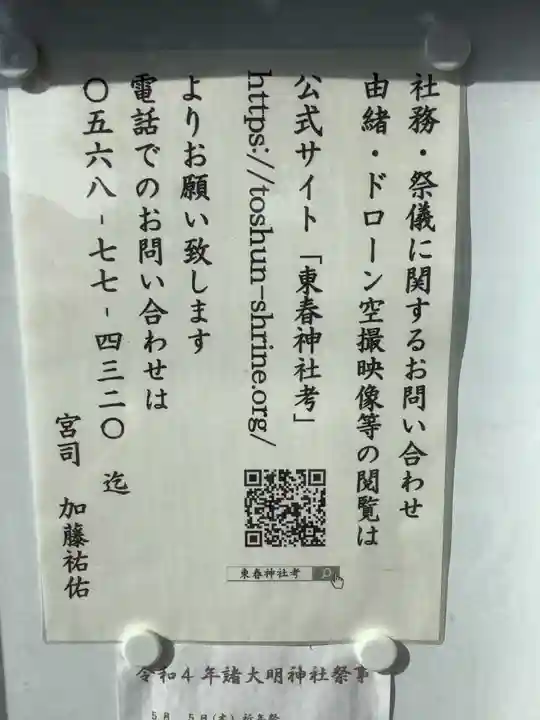 社務・祭儀に関するお問い合わせ
由緒・ドローン空撮映像等の閲覧は
公式サイト「東春神社考」
https://toshun-shrine.org/
よりお願い致します
電話でのお問い合わせは
〇五六八-七七-四三二〇 迄
宮司 加藤祐佑
東春神社考
令和4年諸大明神社祭事
5月 5日(木) 祈年祭